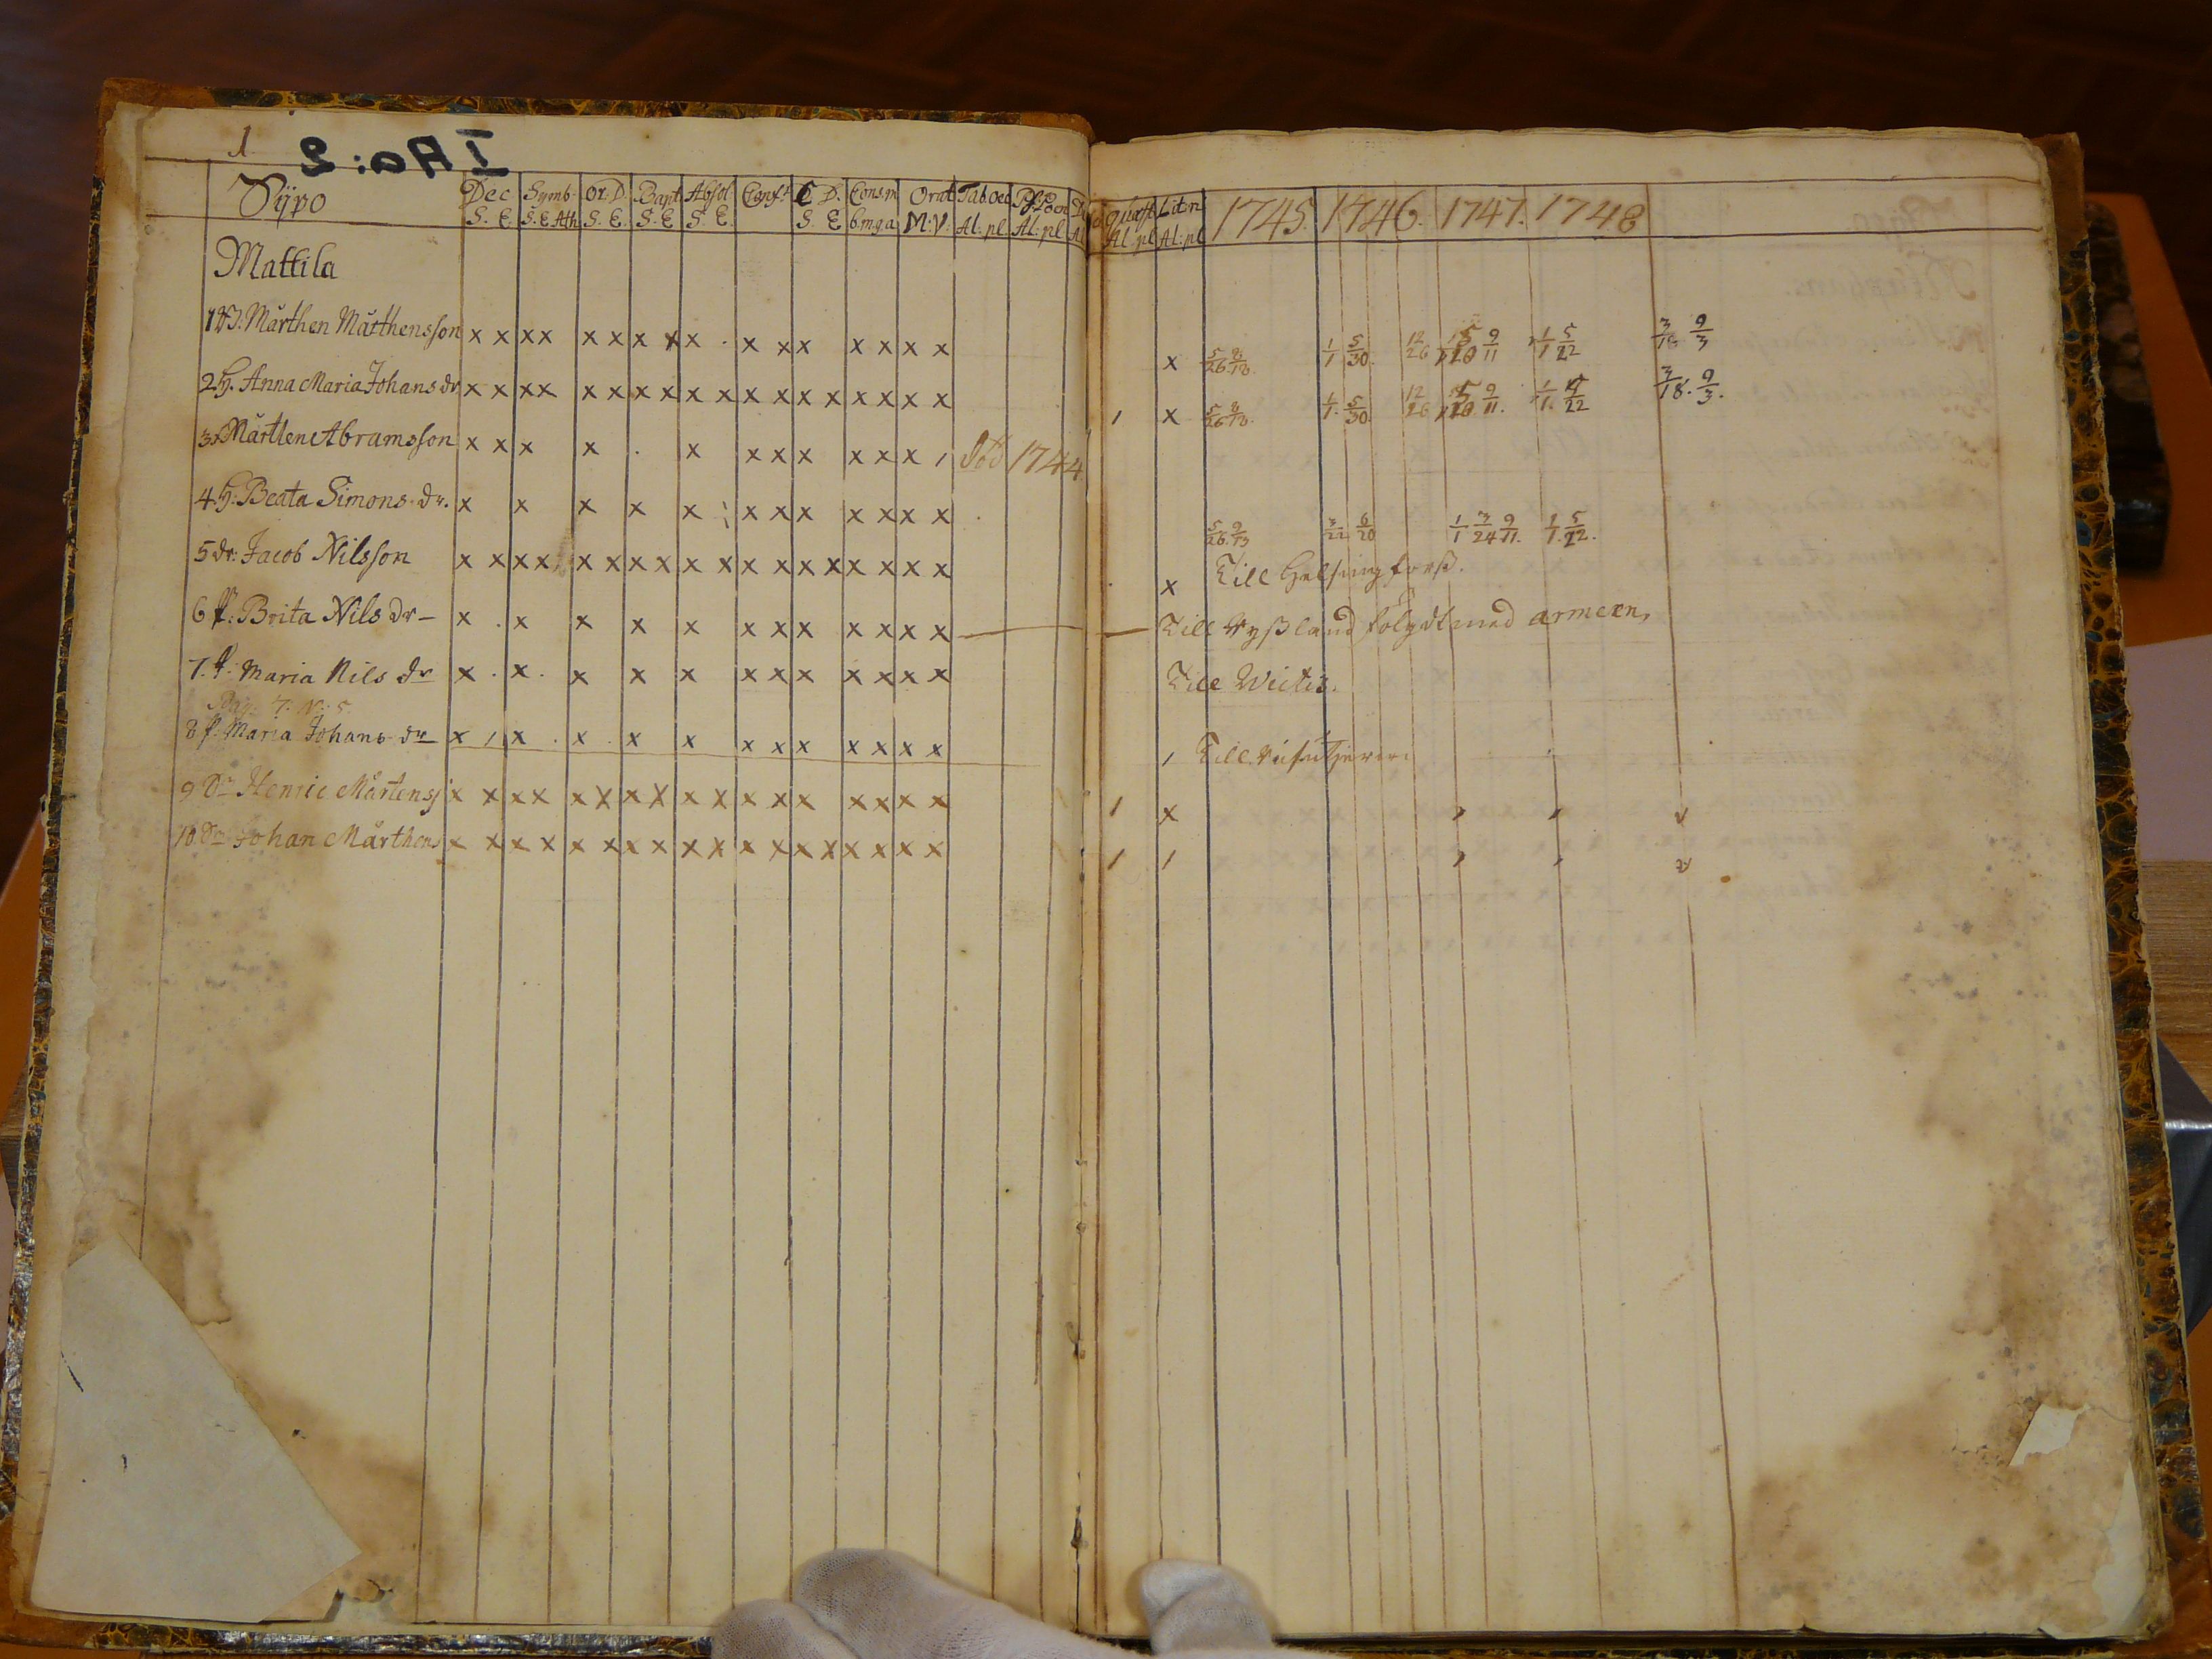 1.
I Aa: 2
Sÿpo
Dec Symb. Or. D. Bapt Absol Conf. C. D. Consm Orat Tab.Oec
S. E. S. E. Ath S. E. S. E S. E. S. E b.m.g.a M: V: Al: pl Al: pl
Al: pl Al: pl
1745. 1746. 1747. 1748
Mattila
1 Mårthen Mårthensson x x x x x x x x x x x x x x x x x
5/26 1/1 5/30 12/26 9/11 1/1 5/22 3/18 9/3
2 H. Anna Maria Johans dr. x x x x x x x x x x x x x x x x x x
1 x 5/26 1/1. 5/30 12/26 9/11. 1/1. 5/22 3/18. 9/3.
3 Mårtten Abramsson x x x x x x x x x x x 1744
4. H: Beata Simons. dr. x x x x x x x x x x x x
5/26 9/13 3/22 6/20 1/1 3/24 9/11. 1/1. 5/22.
5 dr. Jacob Nilsson x x x x x x x x x x x x x x x x x x
x Till Helsingforß.
6 Brita Nils dr x x x x x x x x x x x x
Till Ryßland följdt med armeen,
7. Maria Nils dr x x x x x x x x x x x x
Till
Pag: 7: N: 5
8 Maria Johans dr x x x x x x x x x x x x
Till
9 Henric Mårtens x x x x x x x x x x x x x x x x x
1 x
10. Johan Mårthens x x x x x x x x x x x x x x x x x x
1 1